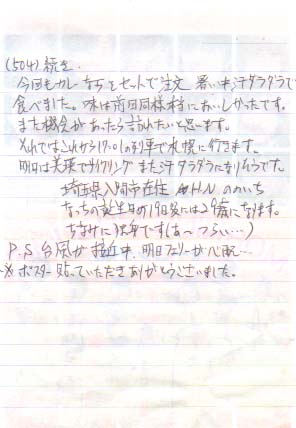 (504) 続き.
今回もカレーなっとセットで注文 暑い中汗ダラダラで
食べました。味は前回同様本当においしかったです。
また機会があったら訪れたいと思います。
それではこれから17:01の列車で札幌に行きます。
明日は美瑛でサイクリング また汗ダラダラになりそうです。
埼玉県入間市在住 のいち
なっちの誕生日の19日後には29歳になります。
ちなみに独身です(あ〜つらい…)
P.S 台風が接近中. 明日フェリーが心配…
※ポスター貼っていただきありがとうございました。